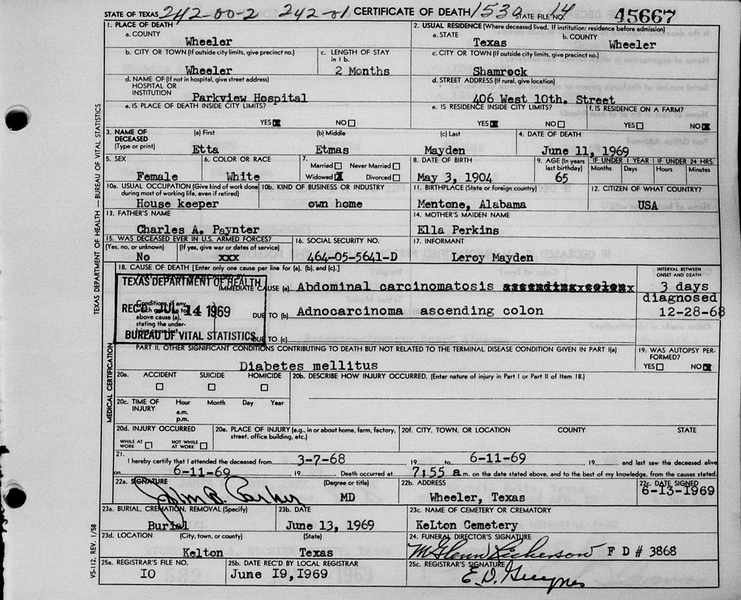 STATE OF TEXAS 242-00-2 242-01 CERTIFICATE OF DEATH 153a STATE FILE NO. 14 45667
1. PLACE OF DEATH 2. USUAL RESIDENCE (Where deceased lived. If institution: residence before admission)
a. COUNTY a. STATE b. COUNTY
Wheeler Texas Wheeler
b. CITY OR TOWN (If outside city limits, give precinct no.) c. LENGTH OF STAY in 1 b. c. CITY OR TOWN (If outside city limits, give precinct no.)
Wheeler 2 Months Shamrock
d. NAME OF (If not in hospital, give street address) HOSPITAL OR INSTITUTION d. STREET ADDRESS (If rural, give location)
Parkview Hospital 406 West 10th. Street
e. IS PLACE OF DEATH INSIDE CITY LIMITS? e. IS RESIDENCE INSIDE CITY LIMITS? f. IS RESIDENCE ON A FARM?
YES NO YES NO YES NO
3. NAME OF DECEASED (Type or print) (a) First (b) Middle (c) Last 4. DATE OF DEATH
Etta Etmas Mayden June 11, 1969
5. SEX 6. COLOR OR RACE 7. Married Never Married 8. DATE OF BIRTH 9. AGE (In years last birthday) IF UNDER 1 YEAR IF UNDER 24 HRS.
Widowed Divorced Months Days Hours Minutes
Female White May 3, 1904 65
10a. USUAL OCCUPATION (Give kind of work done during most of working life, even if retired) 10b. KIND OF BUSINESS OR INDUSTRY 11. BIRTHPLACE (State or foreign country) 12. CITIZEN OF WHAT COUNTRY?
House keeper own home Mentone, Alabama USA
13. FATHER'S NAME 14. MOTHER'S MAIDEN NAME
Charles A. Paynter Ella Perkins
15. WAS DECEASED EVER IN U.S. ARMED FORCES? 16. SOCIAL SECURITY NO. 17. INFORMANT
(Yes, no, or unknown) (If yes, give war or dates of service)
No xxx 464-05-5641-D Leroy Mayden
18. CAUSE OF DEATH [Enter only one cause per line for (a), (b), and (c).] INTERVAL BETWEEN ONSET AND DEATH
TEXAS DEPARTMENT OF HEALTH
IMMEDIATE CAUSE (a) Abdominal carcinomatosis ascending colon 3 days
diagnosed
Conditions, if any, above cause (a), stating the under-
REC'D JUL 14 1969 DUE TO (b) Adnocarcinoma ascending colon 12-28-68
BUREAU OF VITAL STATISTICS DUE TO (c)
PART II. OTHER SIGNIFICANT CONDITIONS CONTRIBUTING TO DEATH BUT NOT RELATED TO THE TERMINAL DISEASE CONDITION GIVEN IN PART I(a) 19. WAS AUTOPSY PERFORMED?
Diabetes mellitus YES NO
20a. ACCIDENT SUICIDE HOMICIDE 20b. DESCRIBE HOW INJURY OCCURRED. (Enter nature of injury in Part I or Part II of Item 18.)
20c. TIME OF INJURY Hour Month Day Year
a.m.
p.m.
20d. INJURY OCCURRED 20e. PLACE OF INJURY (e.g., in or about home, farm, factory, street, office building, etc.) 20f. CITY, TOWN, OR LOCATION COUNTY STATE
WHILE AT WORK NOT WHILE AT WORK
21. I hereby certify that I attended the deceased from 3-7-68 19 to 6-11-69 19 and last saw the deceased alive
on 6-11-69 19 Death occurred at 7:55 a.m. on the date stated above, and to the best of my knowledge, from the causes stated.
22a. SIGNATURE (Degree or title) 22b. ADDRESS 22c. DATE SIGNED
John R. Parker MD Wheeler, Texas 6-13-1969
23a. BURIAL, CREMATION, REMOVAL (Specify) 23b. DATE 23c. NAME OF CEMETERY OR CREMATORY
Burial June 13, 1969 Kelton Cemetery
23d. LOCATION (City, town, or county) (State) 24. FUNERAL DIRECTOR'S SIGNATURE
Kelton Texas F D # 3868
25a. REGISTRAR'S FILE NO. 25b. DATE REC'D BY LOCAL REGISTRAR 25c. REGISTRAR'S SIGNATURE
10 June 19, 1969
TEXAS DEPARTMENT OF HEALTH — BUREAU OF VITAL STATISTICS
MEDICAL CERTIFICATION
VS-112, REV. 1/58